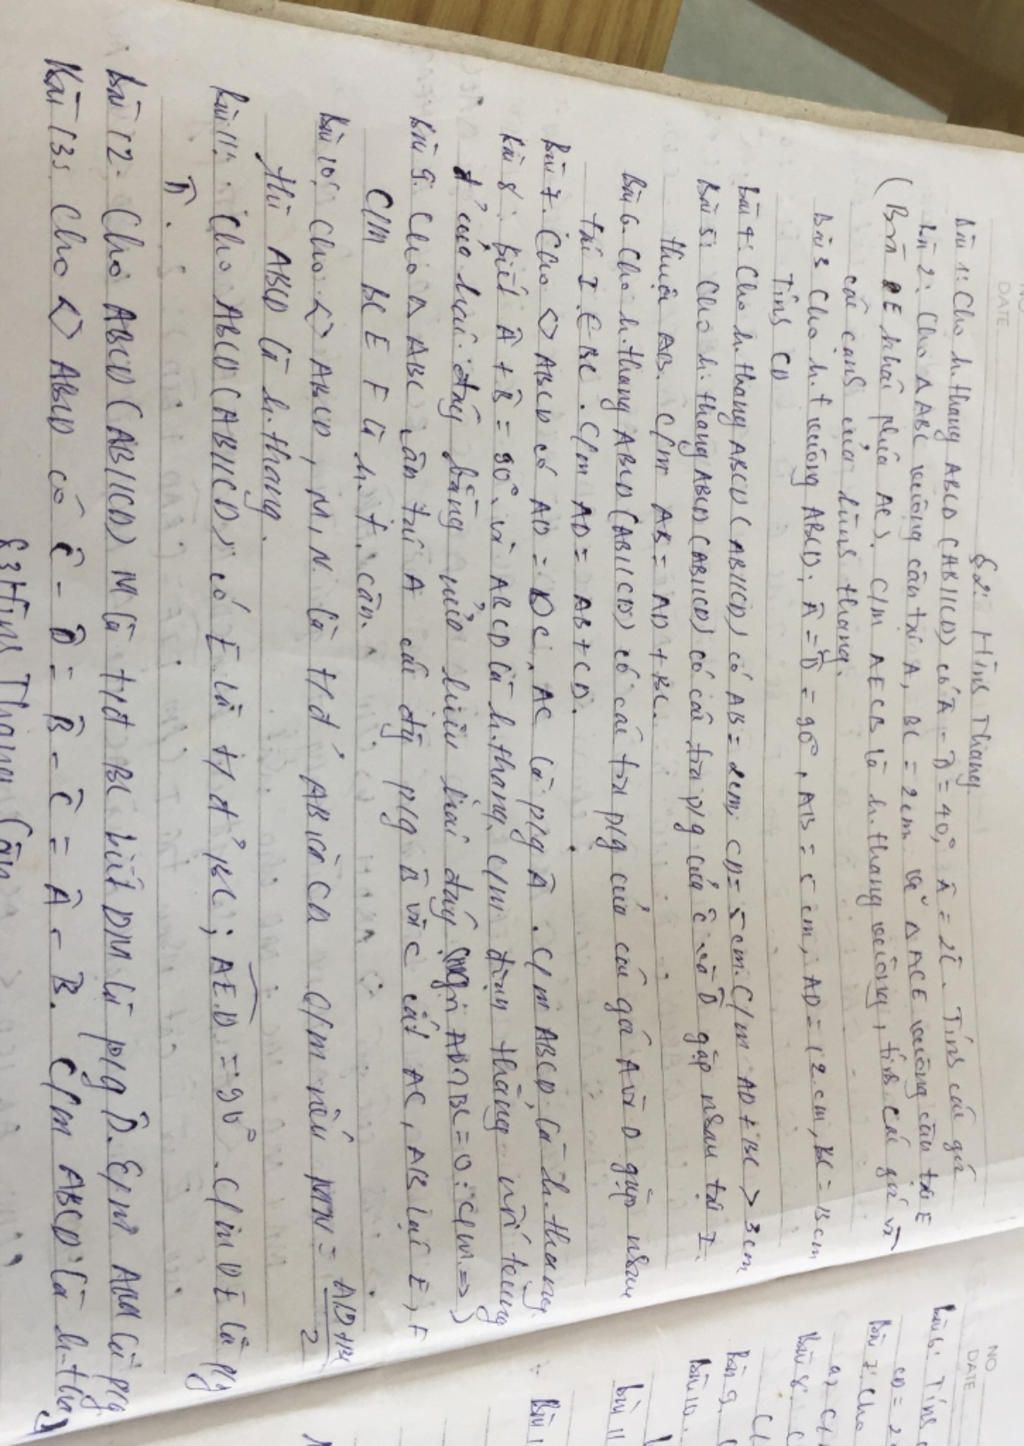 NO
DATE
§2: Hình Thang
Bài 1: Cho h.thang ABCD (AB//CD) có Â - D̂ = 40°, Â = 2Ĉ. Tính các góc
Bài 2: Cho △ ABC vuông cân tại A, BC = 2cm vẽ △ ACE vuông cân tại E
(B và E khác phía AC). C/m AECB là h.thang vuông, tính các góc và
các cạnh của hình thang.
Bài 3 Cho h.t vuông ABCD; Â = D̂ = 90°, AB = 5 cm, AD = 12 cm, BC = 13cm
Tính CD
Bài 4: Cho h.thang ABCD (AB//CD) có AB = 2cm, CD = 5cm. C/m AD + BC > 3cm
Bài 5: Cho h.thang ABCD (AB//CD) có các tia p/g của Ĉ và D̂ gặp nhau tại I
thuộc AB. C/m AB = AD + BC.
Bài 6. Cho h.thang ABCD (AB//CD) có các tia p/g của các góc A và D gặp nhau
tại I ∈ BC. C/m AD = AB + CD.
Bài 7. Cho ◇ ABCD có AD = DC, AC là p/g Â. C/m ABCD là h.thang
Bài 8: Biết Â + B̂ = 90° và ABCD là h.thang. C/m đoạn thẳng nối trung
đ' của hai đáy bằng nửa hiệu hai đáy (gọi AD∩BC = O: C/m ⇒)
Bài 9. Cho △ ABC cân tại A các đg p/g B̂ và Ĉ cắt AC, AB tại E, F
C/m BCEF là h.t. cân.
Bài 10: Cho ◇ ABCD, M, N là t/đ' AB và CD C/m nếu MN = (AD+BC)/2
thì ABCD là h.thang.
Bài 11: Cho ABCD (AB//CD) có E là t/đ' BC; AED = 90°. C/m DE là p/g
D̂.
Bài 12: Cho ABCD (AB//CD) M là t/đ BC biết DM là p/g D̂. C/m AM là p/g
Bài 13: Cho ◇ ABCD có Ĉ - D̂ = B̂ - Ĉ = Â - B̂. C/m ABCD là h.thg
§3 Hình Thang Cân
NO
DATE
Bài 6: Tính
CD = 2
Bài 7: Cho
Bài 8.
Bài 9.
Bài 10.
Bài 11
Bài 1